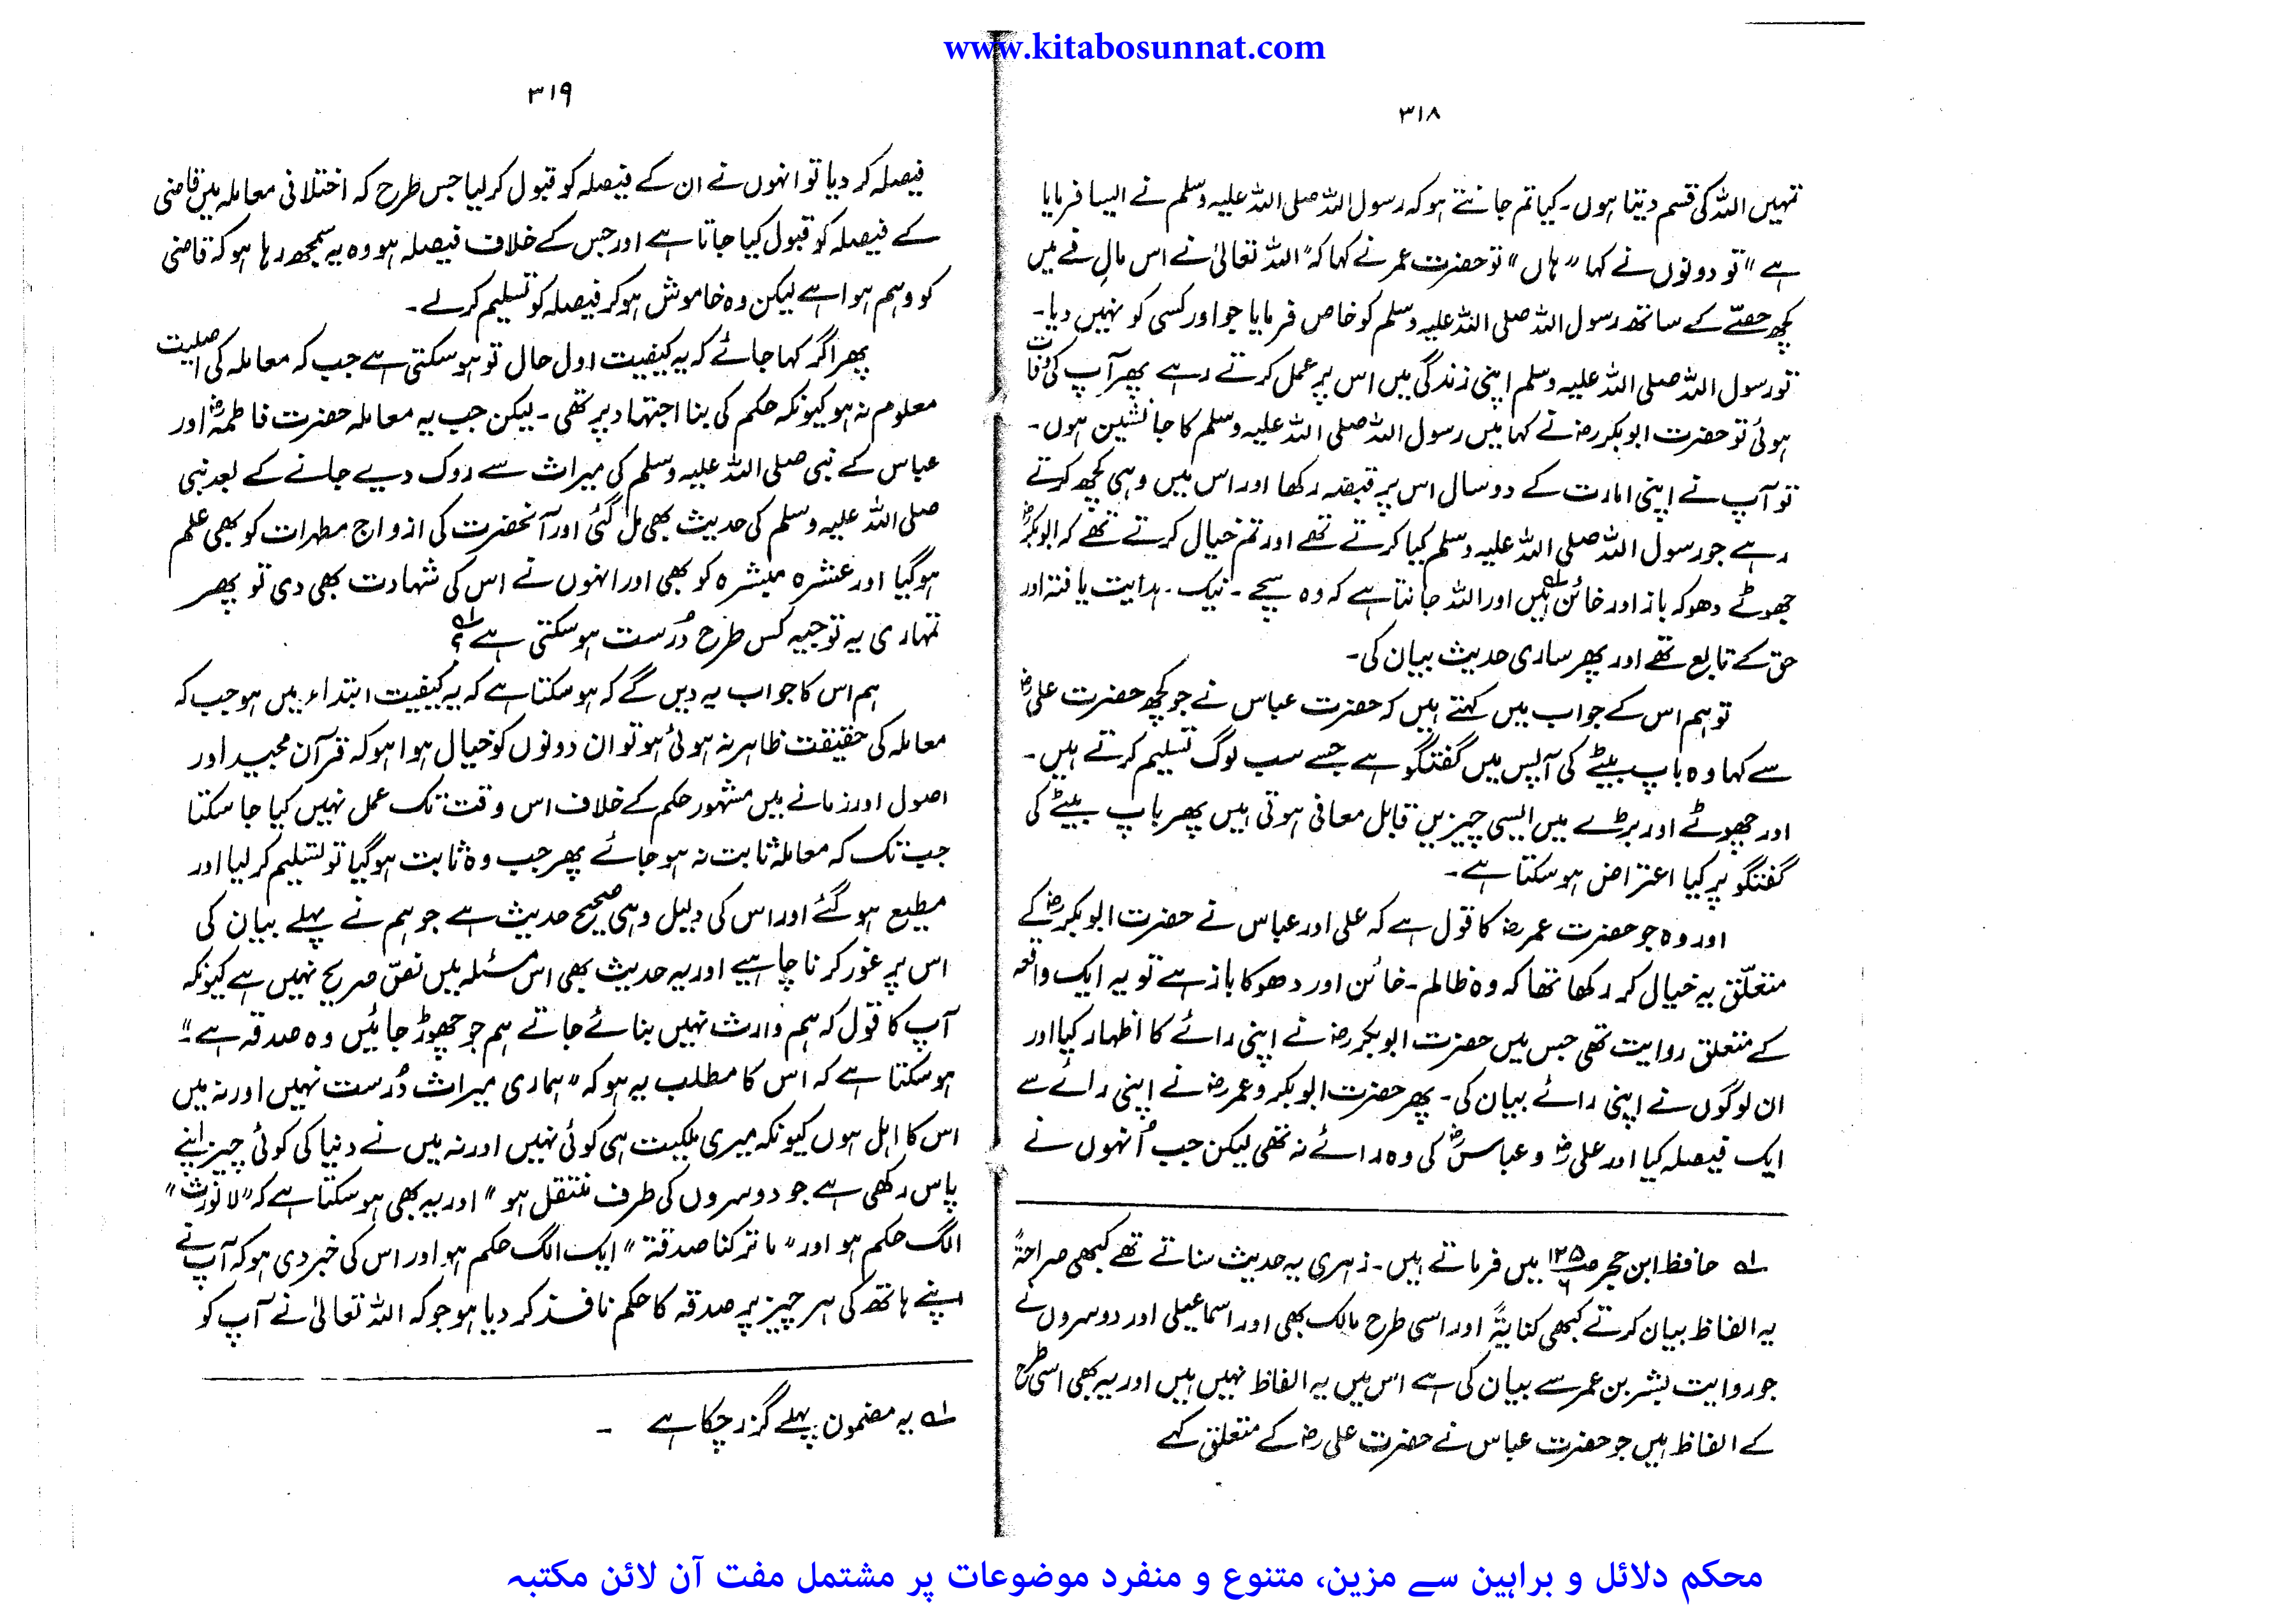 www.kitabosunnat.com
۳۱۸
تمہیں اللہ کی قسم دیتا ہوں۔ کیا تم جانتے ہو کہ رسول اللہ صلی اللہ علیہ وسلم نے ایسا فرمایا
ہے" تو دونوں نے کہا "ہاں" تو حضرت عمر نے کہا کہ "اللہ تعالیٰ نے اس مالِ فے میں
کچھ حصّے کے ساتھ رسول اللہ صلی اللہ علیہ وسلم کو خاص فرمایا جو اور کسی کو نہیں دیا۔
تو رسول اللہ صلی اللہ علیہ وسلم اپنی زندگی میں اس پر عمل کرتے رہے پھر آپ کی وفات
ہوئی تو حضرت ابوبکر رض نے کہا میں رسول اللہ صلی اللہ علیہ وسلم کا جانشین ہوں۔
تو آپ نے اپنی امارت کے دو سال اس پر قبضہ رکھا اور اس میں وہی کچھ کرتے
رہے جو رسول اللہ صلی اللہ علیہ وسلم کیا کرتے تھے اور تم خیال کرتے تھے کہ ابوبکرؓ
جھوٹے دھوکہ باز اور خائن ہیں لہ اور اللہ جانتا ہے کہ وہ سچے۔ نیک۔ ہدایت یافتہ اور
حق کے تابع تھے اور پھر ساری حدیث بیان کی۔
تو ہم اس کے جواب میں کہتے ہیں کہ حضرت عباس نے جو کچھ حضرت علیؓ
سے کہا وہ باپ بیٹے کی آپس میں گفتگو ہے جسے سب لوگ تسلیم کرتے ہیں۔
اور چھوٹے اور بڑے میں ایسی چیزیں قابل معافی ہوتی ہیں پھر باپ بیٹے کی
گفتگو پر کیا اعتراض ہو سکتا ہے۔
اور وہ جو حضرت عمر رض کا قول ہے کہ علی اور عباس نے حضرت ابوبکرؓ کے
متعلّق یہ خیال کر رکھا تھا کہ وہ ظالم۔ خائن اور دھوکا باز ہے تو یہ ایک واقعہ
کے متعلق روایت تھی جس میں حضرت ابوبکر رض نے اپنی رائے کا اظہار کیا اور
ان لوگوں نے اپنی رائے بیان کی۔ پھر حضرت ابوبکر و عمر رض نے اپنی رائے سے
ایک فیصلہ کیا اور علیؓ و عباسؓ کی وہ رائے نہ تھی لیکن جب اُنہوں نے
لہ حافظ ابن حجر ص ۱۲۵/۶ میں فرماتے ہیں۔ زہری یہ حدیث سناتے تھے کبھی صراحۃً
یہ الفاظ بیان کرتے کبھی کنایۃً اور اسی طرح مالک بھی اور اسماعیلی اور دوسروں نے
جو روایت بشر بن عمر سے بیان کی ہے اس میں یہ الفاظ نہیں ہیں اور یہ بھی اسی طرح
کے الفاظ ہیں جو حضرت عباس نے حضرت علی رض کے متعلق کہے
۳۱۹
فیصلہ کر دیا تو انہوں نے ان کے فیصلہ کو قبول کر لیا جس طرح کہ اختلافی معاملہ میں قاضی
کے فیصلہ کو قبول کیا جاتا ہے اور جس کے خلاف فیصلہ ہو وہ یہ سمجھ رہا ہو کہ قاضی
کو وہم ہوا ہے لیکن وہ خاموش ہو کر فیصلہ کو تسلیم کر لے۔
پھر اگر کہا جائے کہ یہ کیفیت اول حال تو ہو سکتی ہے جب کہ معاملہ کی اصلیت
معلوم نہ ہو کیونکہ حکم کی بنا اجتہاد پر تھی۔ لیکن جب یہ معاملہ حضرت فاطمہؓ اور
عباس کے نبی صلی اللہ علیہ وسلم کی میراث سے روک دیے جانے کے بعد نبی
صلی اللہ علیہ وسلم کی حدیث بھی مل گئی اور آنحضرت کی ازواج مطہرات کو بھی علم
ہو گیا اور عشرہ مبشرہ کو بھی اور انہوں نے اس کی شہادت بھی دی تو پھر
تمہاری یہ توجیہ کس طرح دُرست ہو سکتی ہے لہ ؟
ہم اس کا جواب یہ دیں گے کہ ہو سکتا ہے کہ یہ کیفیت ابتداء میں ہو جب کہ
معاملہ کی حقیقت ظاہر نہ ہوئی ہو تو ان دونوں کو خیال ہوا ہو کہ قرآن مجید اور
اصول اور زمانے میں مشہور حکم کے خلاف اس وقت تک عمل نہیں کیا جا سکتا
جب تک کہ معاملہ ثابت نہ ہو جائے پھر جب وہ ثابت ہو گیا تو تسلیم کر لیا اور
مطیع ہو گئے اور اس کی دلیل وہی صحیح حدیث ہے جو ہم نے پہلے بیان کی
اس پر غور کرنا چاہیے اور یہ حدیث بھی اس مسئلہ میں نصّ صریح نہیں ہے کیونکہ
آپ کا قول کہ ہم وارث نہیں بنائے جاتے ہم جو چھوڑ جائیں وہ صدقہ ہے"
ہو سکتا ہے کہ اس کا مطلب یہ ہو کہ "ہماری میراث دُرست نہیں اور نہ میں
اس کا اہل ہوں کیونکہ میری ملکیت ہی کوئی نہیں اور نہ میں نے دنیا کی کوئی چیز اپنے
پاس رکھی ہے جو دوسروں کی طرف منتقل ہو" اور یہ بھی ہو سکتا ہے کہ "لا نورث"
الگ حکم ہو اور "ما ترکنا صدقۃ" ایک الگ حکم ہو اور اس کی خبر دی ہو کہ آپ نے
اپنے ہاتھ کی ہر چیز پر صدقہ کا حکم نافذ کر دیا ہو جو کہ اللہ تعالیٰ نے آپ کو
لہ یہ مضمون پہلے گزر چکا ہے ۔
محکم دلائل و براہین سے مزین، متنوع و منفرد موضوعات پر مشتمل مفت آن لائن مکتبہ